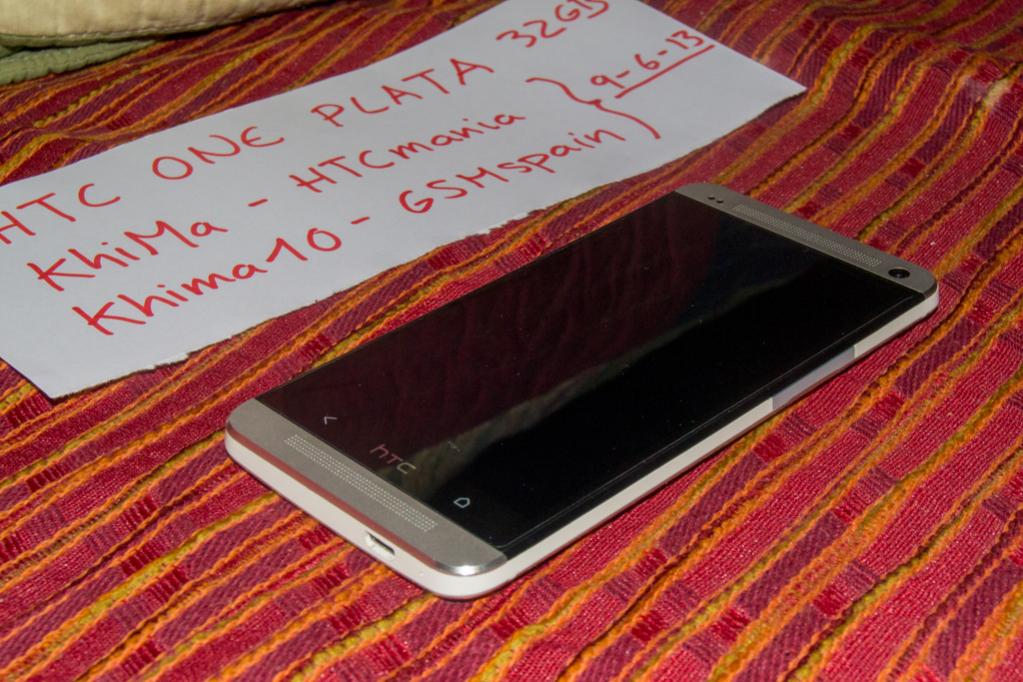 HTC ONE PLATA 32GB
KhiMa - HTCmania
Khima10 - GSMspain } 9-6-13
hTC